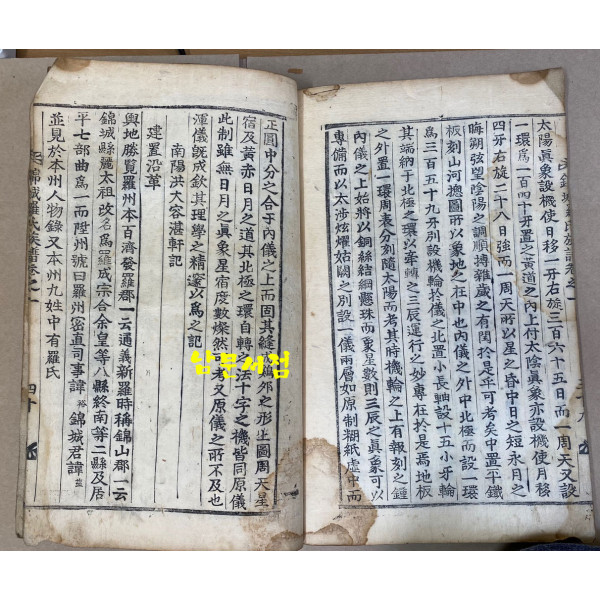 太陽眞象設機使日移一牙右旋三百六十五日而一周天又設
一環爲一百四十牙置之黃道之內上付太陰眞象亦設機使月移
四牙右旋二十八日強而一周天所以星之昏中日之短永月之
晦朔弦望陰陽之調順搏雜歲之有閏於是乎可考矣中置平鐵
板刻山河摠圖所以象地之在中也內儀之外中北極而設一環
爲三百五十九牙別設機輪於儀之北置小長軸設十五小牙輪
其端納于北極之環以牽轉之三辰運行之妙專在於是焉地板
之外置一環周表分刻隨太陽而考其時機輪之上有報刻之鍾
內儀之上始將以銅絲結網懸珠而象星數則三辰之眞象可以
專備而以太涉炫燿姑闕之別設一儀兩層如原制糊紙虛中而
正圓中分之合于內儀之上而固其縫象外之形上圖周天星
宿及黃赤日月之道其北極之環自轉之法十字之機皆同原儀
此制雖無日月之眞象星宿度數燦然可考又原儀之所不及也
渾儀旣成欽其理學之精邃以爲之記
南陽洪大容湛軒記
建置沿革
輿地勝覽羅州本百濟發羅郡一云通義新羅時稱錦山郡一云
錦城縣麗太祖改名爲羅成宗合余皇等八縣終南等二縣及居
平七部曲爲一而陞州號曰羅州密直司事諱裕錦城君諱益
並見於本州人物錄又本州九姓中有羅氏
錦城羅氏族譜卷之一
四十
남문서점